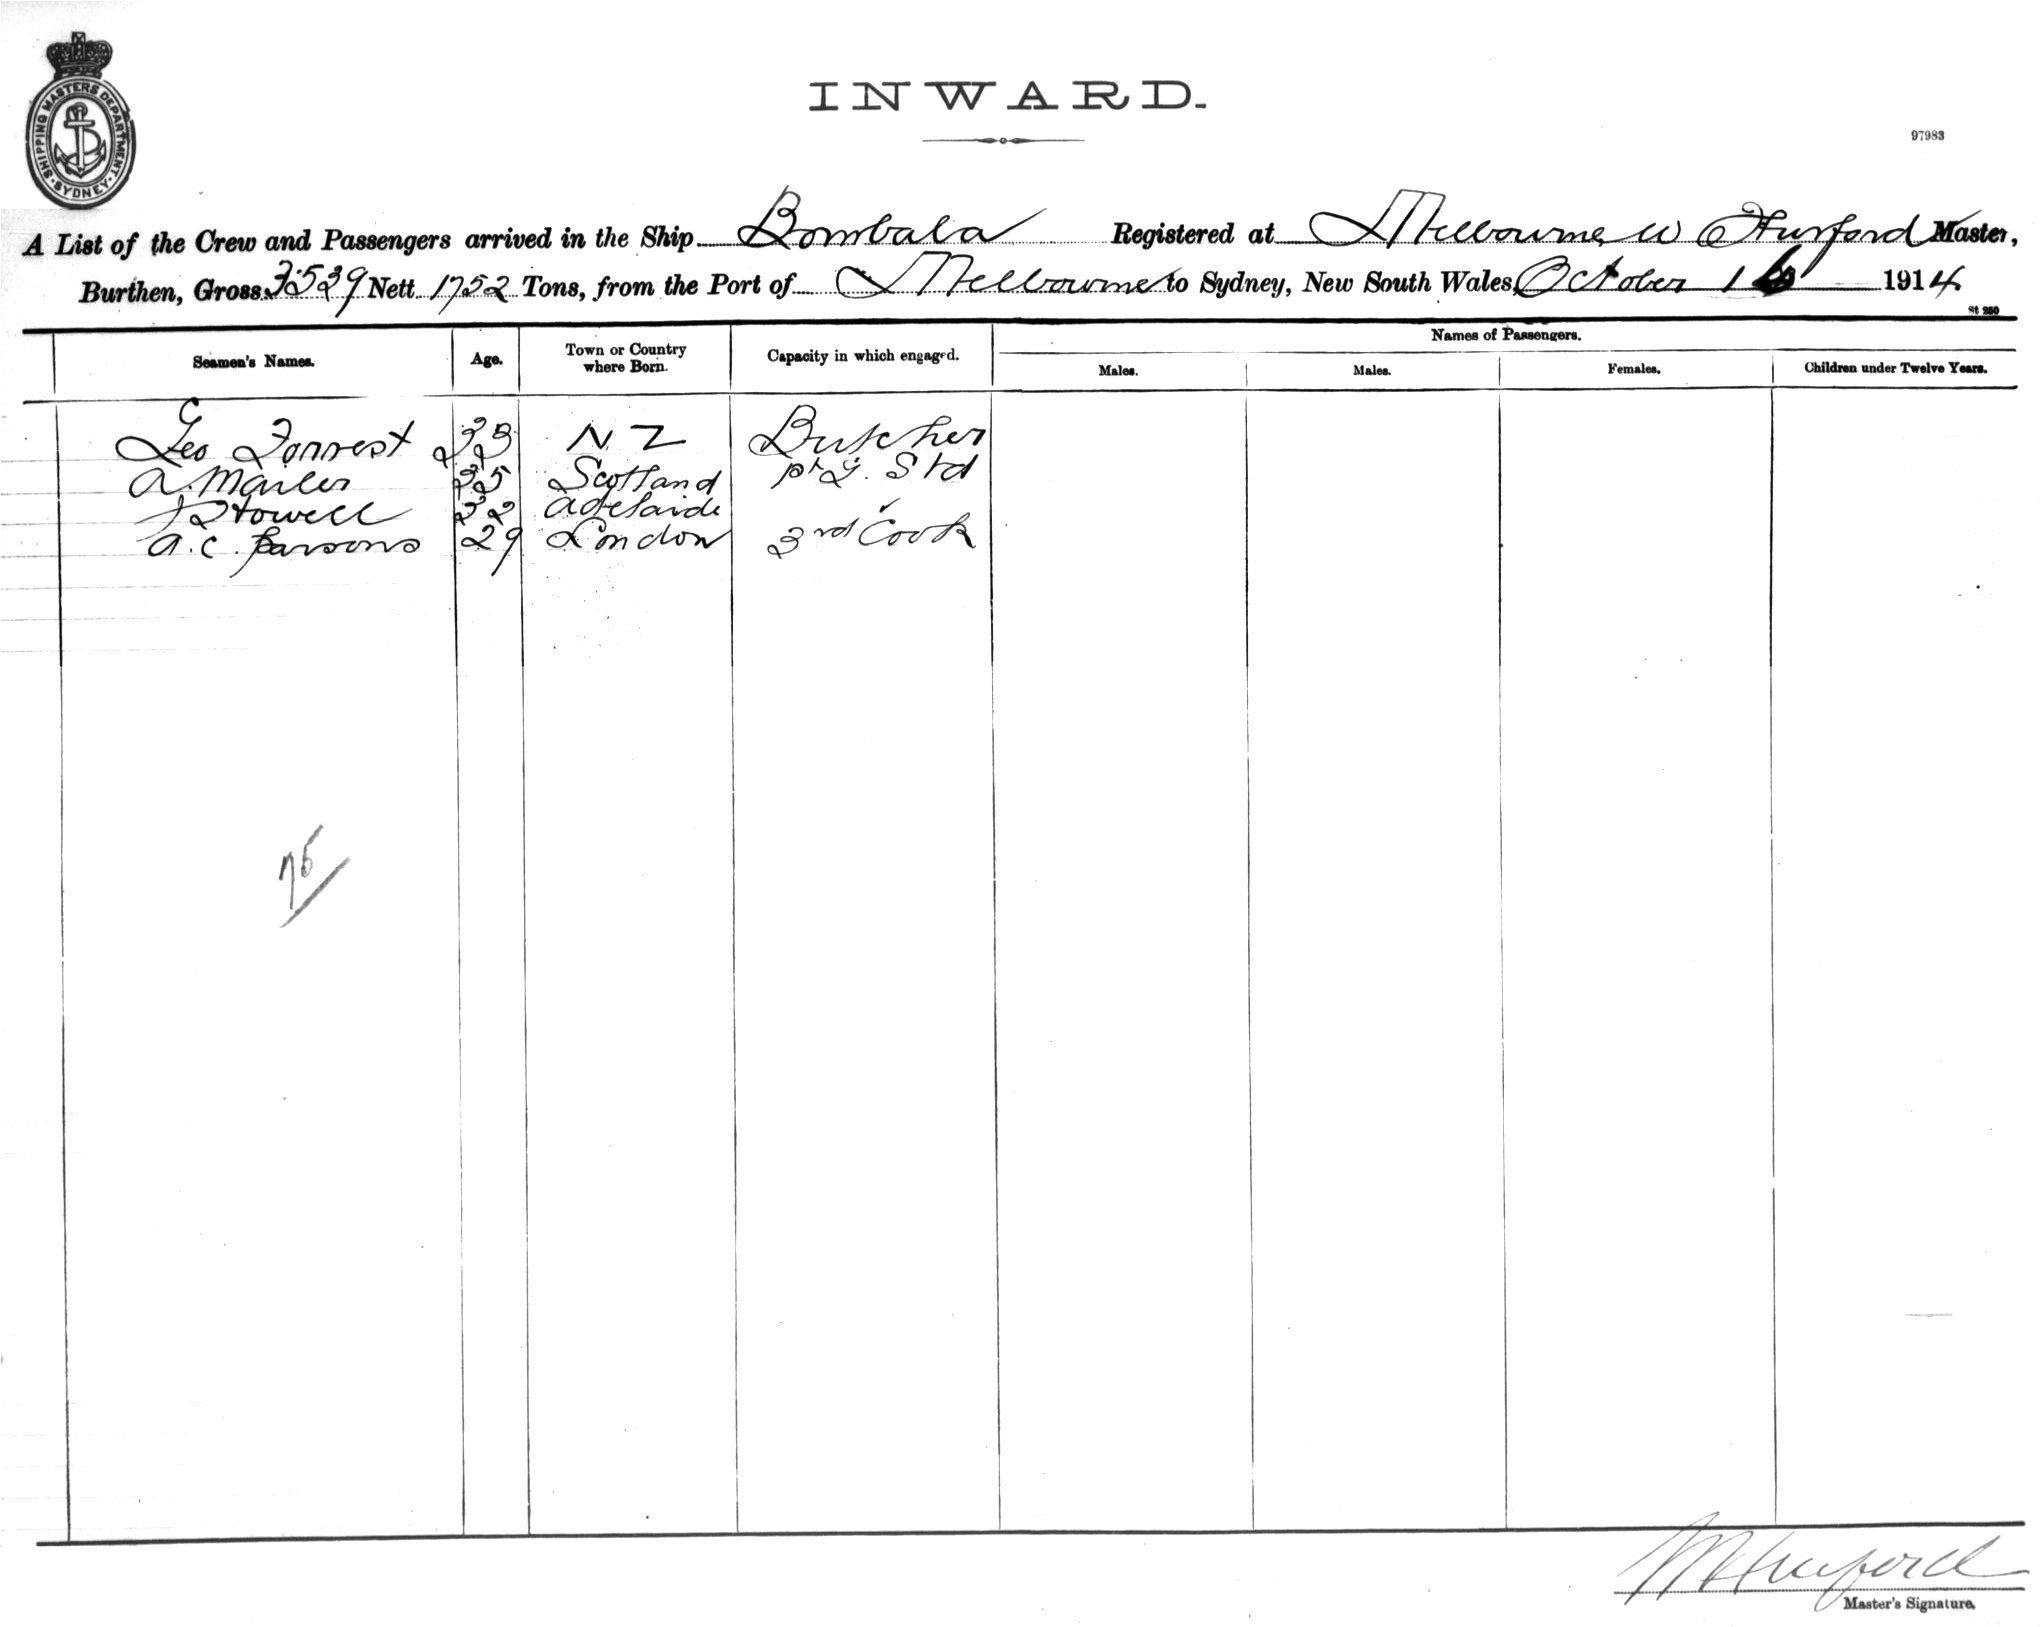 SHIPPING MASTERS DEPARTMENT · SYDNEY ·
INWARD.
97983
A List of the Crew and Passengers arrived in the Ship Bombala Registered at Melbourne W Hurford Master,
Burthen, Gross 3539 Nett 1752 Tons, from the Port of Melbourne to Sydney, New South Wales, October 16 1914
St 250
Names of Passengers.
Seamen's Names. Age. Town or Country where Born. Capacity in which engaged. Males. Males. Females. Children under Twelve Years.
Geo Forrest 33 N Z Butcher
A. 35 Scotland Std
Howell 32 Adelaide
A. C. Parsons 29 London 3rd Cook
76
W Hurford
Master's Signature.